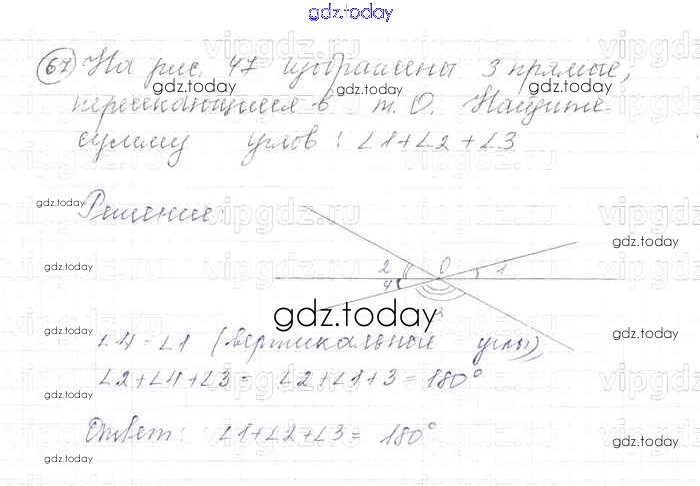 gdz.today
67 На рис. 47 изображены 3 прямые,
пересекающиеся в т. О. Найдите
сумму углов: ∠1+∠2+∠3
Решение:
2 O 1
4
3
∠4=∠1 (вертикальные углы),
∠2+∠4+∠3= ∠2+∠1+3=180°
Ответ: ∠1+∠2+∠3= 180°
gdz.today
gdz.today
gdz.today
gdz.today
gdz.today
gdz.today
gdz.today
gdz.today
gdz.today
gdz.today
gdz.today
gdz.today
gdz.today
vipgdz.ru
vipgdz.ru
vipgdz.ru